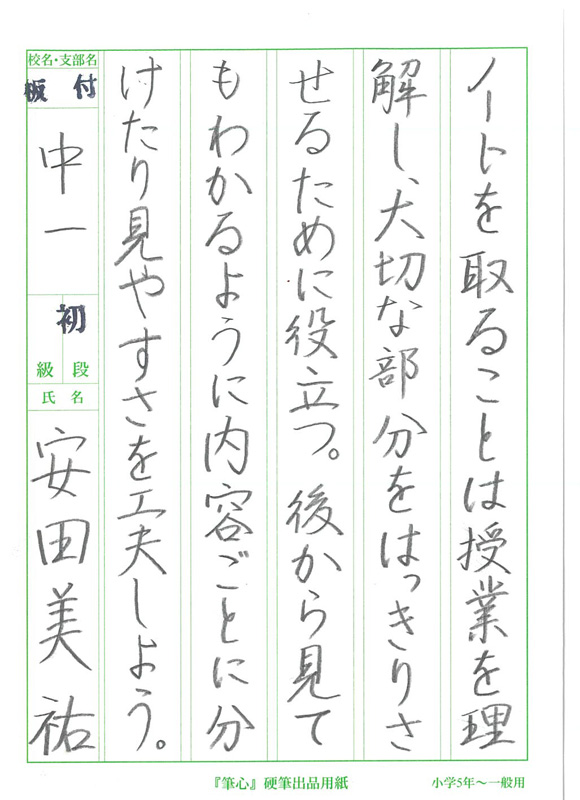 ノートを取ることは授業を理
解し、大切な部分をはっきりさ
せるために役立つ。後から見て
もわかるように内容ごとに分
けたり見やすさを工夫しよう。
校名・支部名
板付
中一
初
級段
氏名
安田美祐
『筆心』硬筆出品用紙
小学5年〜一般用